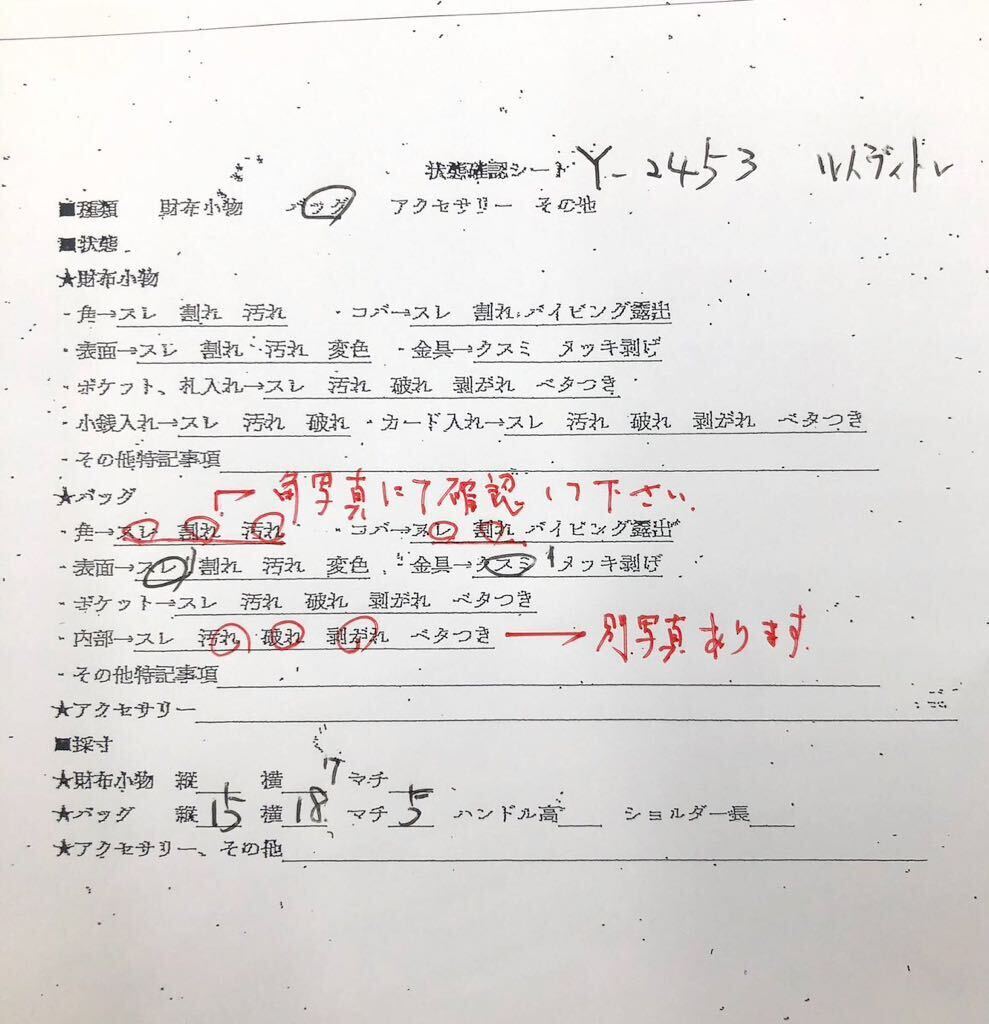 状態確認シート Y-2453
■種類 財布小物 バッグ アクセサリー その他
■状態
★財布小物
・角→スレ 割れ 汚れ ・コバ→スレ 割れ パイピング露出
・表面→スレ 割れ 汚れ 変色 ・金具→クスミ メッキ剥げ
・ポケット、札入れ→スレ 汚れ 破れ 剥がれ ベタつき
・小銭入れ→スレ 汚れ 破れ ・カード入れ→スレ 汚れ 破れ 剥がれ ベタつき
・その他特記事項
★バッグ 写真にて確認して下さい
・角→スレ 割れ 汚れ ・コバ→スレ 割れ パイピング露出
・表面→スレ 割れ 汚れ 変色 ・金具→クスミ メッキ剥げ
・ポケット→スレ 汚れ 破れ 剥がれ ベタつき
・内部→スレ 汚れ 破れ 剥がれ ベタつき → 別写真あります
・その他特記事項
★アクセサリー
■採寸
★財布小物 縦 横 マチ
★バッグ 縦15 横18 マチ5 ハンドル高 ショルダー長
★アクセサリー、その他